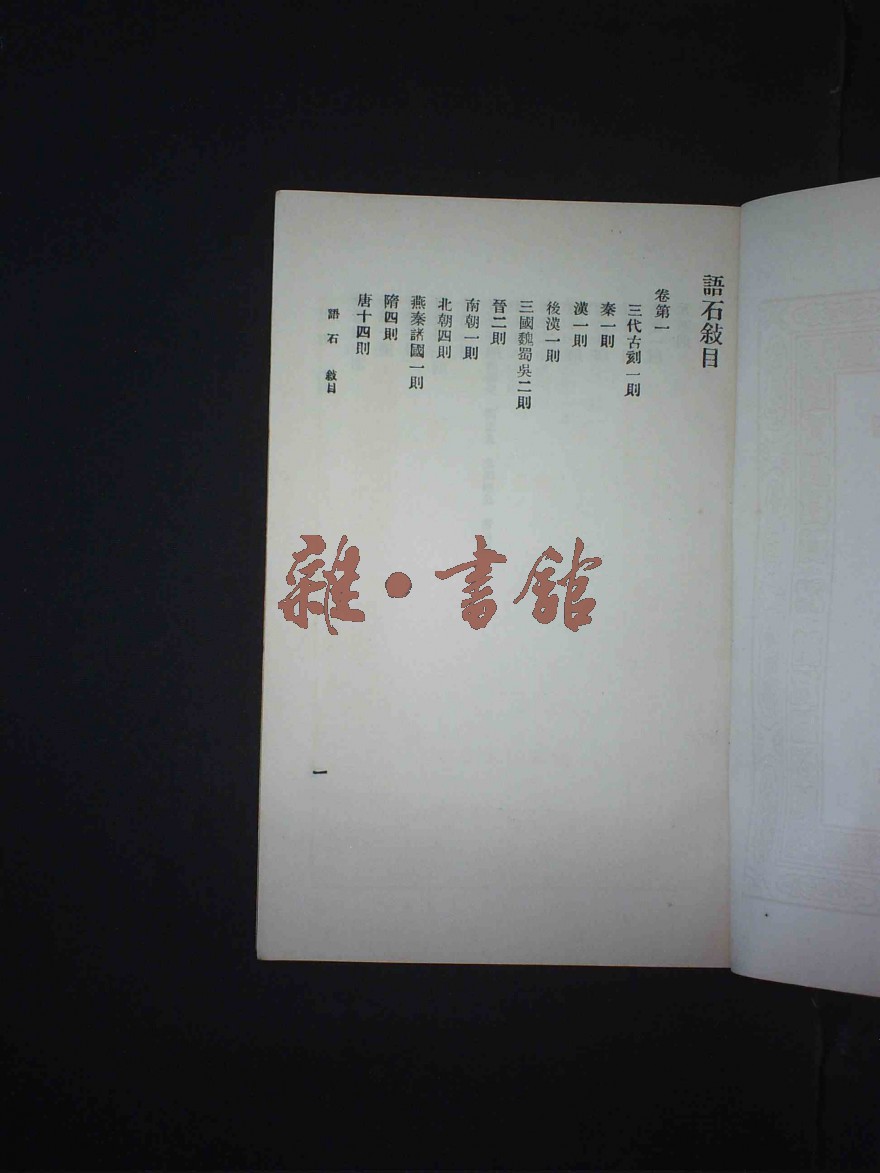 語石敍目
卷第一
三代古刻一則
秦一則
漢一則
後漢一則
三國魏蜀吳二則
晉二則
南朝一則
北朝四則
燕秦諸國一則
隋四則
唐十四則
語石 敍目
一
雜·書館